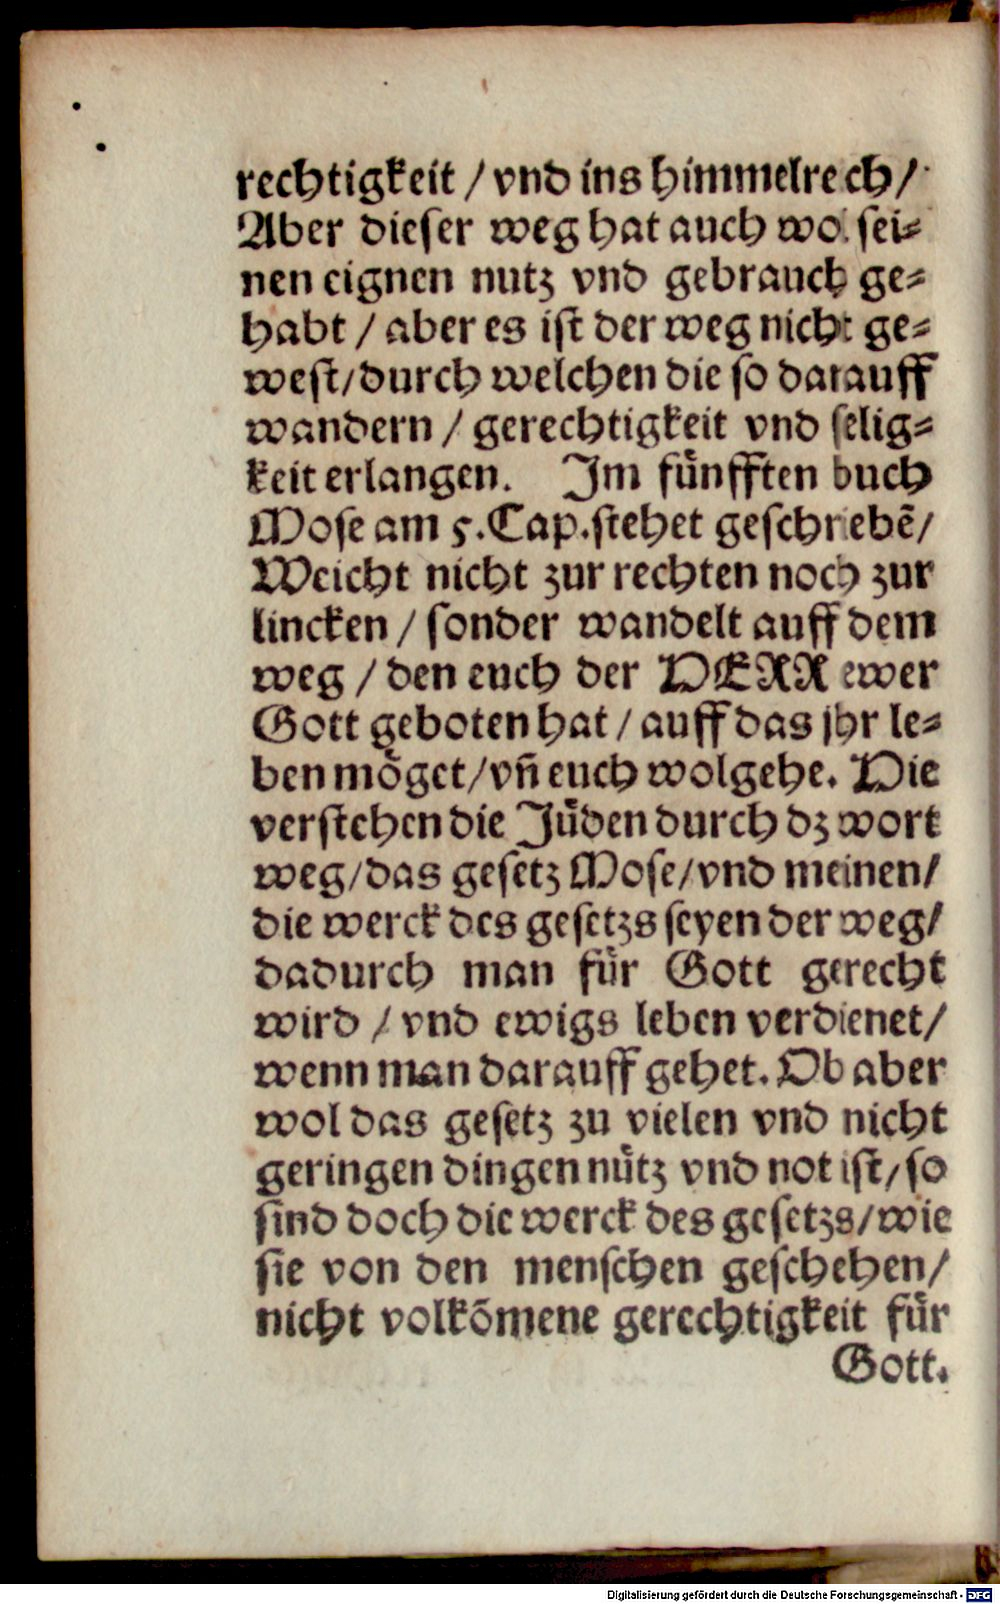 rechtigkeit / vnd ins himmelrech /
Aber dieser weg hat auch wol sei⸗
nen eignen nutz vnd gebrauch ge⸗
habt / aber es ist der weg nicht ge⸗
west / durch welchen die so darauff
wandern / gerechtigkeit vnd selig⸗
keit erlangen. Im fünfften buch
Mose am 5. Cap. stehet geschriebẽ /
Weicht nicht zur rechten noch zur
lincken / sonder wandelt auff dem
weg / den euch der HERR ewer
Gott geboten hat / auff das jhr le⸗
ben möget / vñ euch wolgehe. Hie
verstehen die Jüden durch dz wort
weg / das gesetz Mose / vnd meinen /
die werck des gesetzs seyen der weg /
dadurch man für Gott gerecht
wird / vnd ewigs leben verdienet /
wenn man darauff gehet. Ob aber
wol das gesetz zu vielen vnd nicht
geringen dingen nütz vnd not ist / so
sind doch die werck des gesetzs / wie
sie von den menschen geschehen /
nicht volkõmene gerechtigkeit für
Gott.
Digitalisierung gefördert durch die Deutsche Forschungsgemeinschaft - DFG